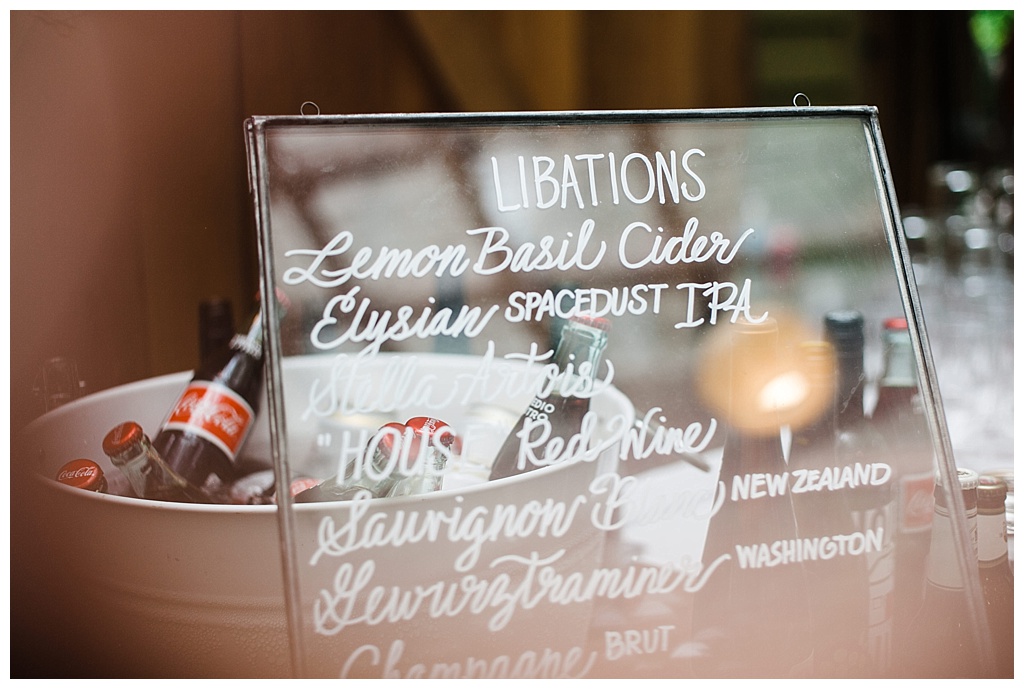 LIBATIONS
Lemon Basil Cider
Elysian SPACEDUST IPA
Stella Artois
"HOUSE" Red Wine
Sauvignon Blanc NEW ZEALAND
Gewurztraminer WASHINGTON
Champagne BRUT
Coca-Cola
Coca-Cola
MEDIO